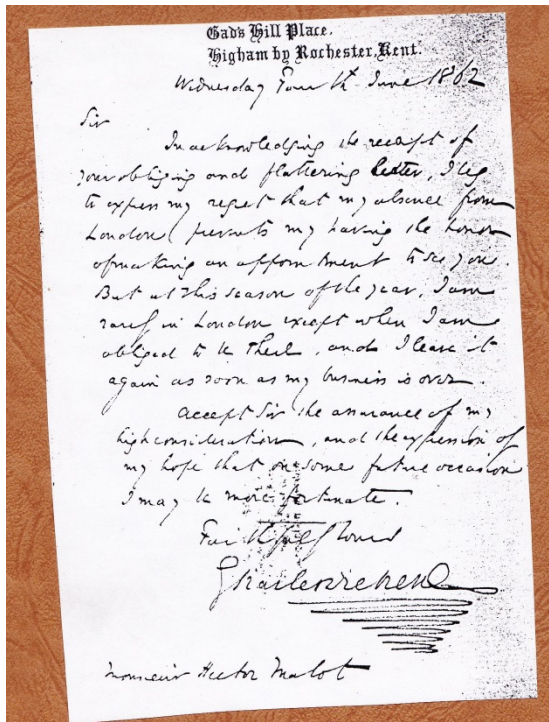 Gad's Hill Place,
Higham by Rochester, Kent.
Wednesday Fourth June 1862
Sir
In acknowledging the receipt of
your obliging and flattering letter, I beg
to express my regret that my absence from
London prevents my having the honor
of making an appointment to see you.
But at this season of the year, I am
rarely in London except when I am
obliged to be there, and I leave it
again as soon as my business is over.
Accept Sir the assurance of my
high consideration, and the expression of
my hope that on some future occasion
I may be more fortunate.
Faithfully Yours
Charles Dickens
Monsieur Hector Malot